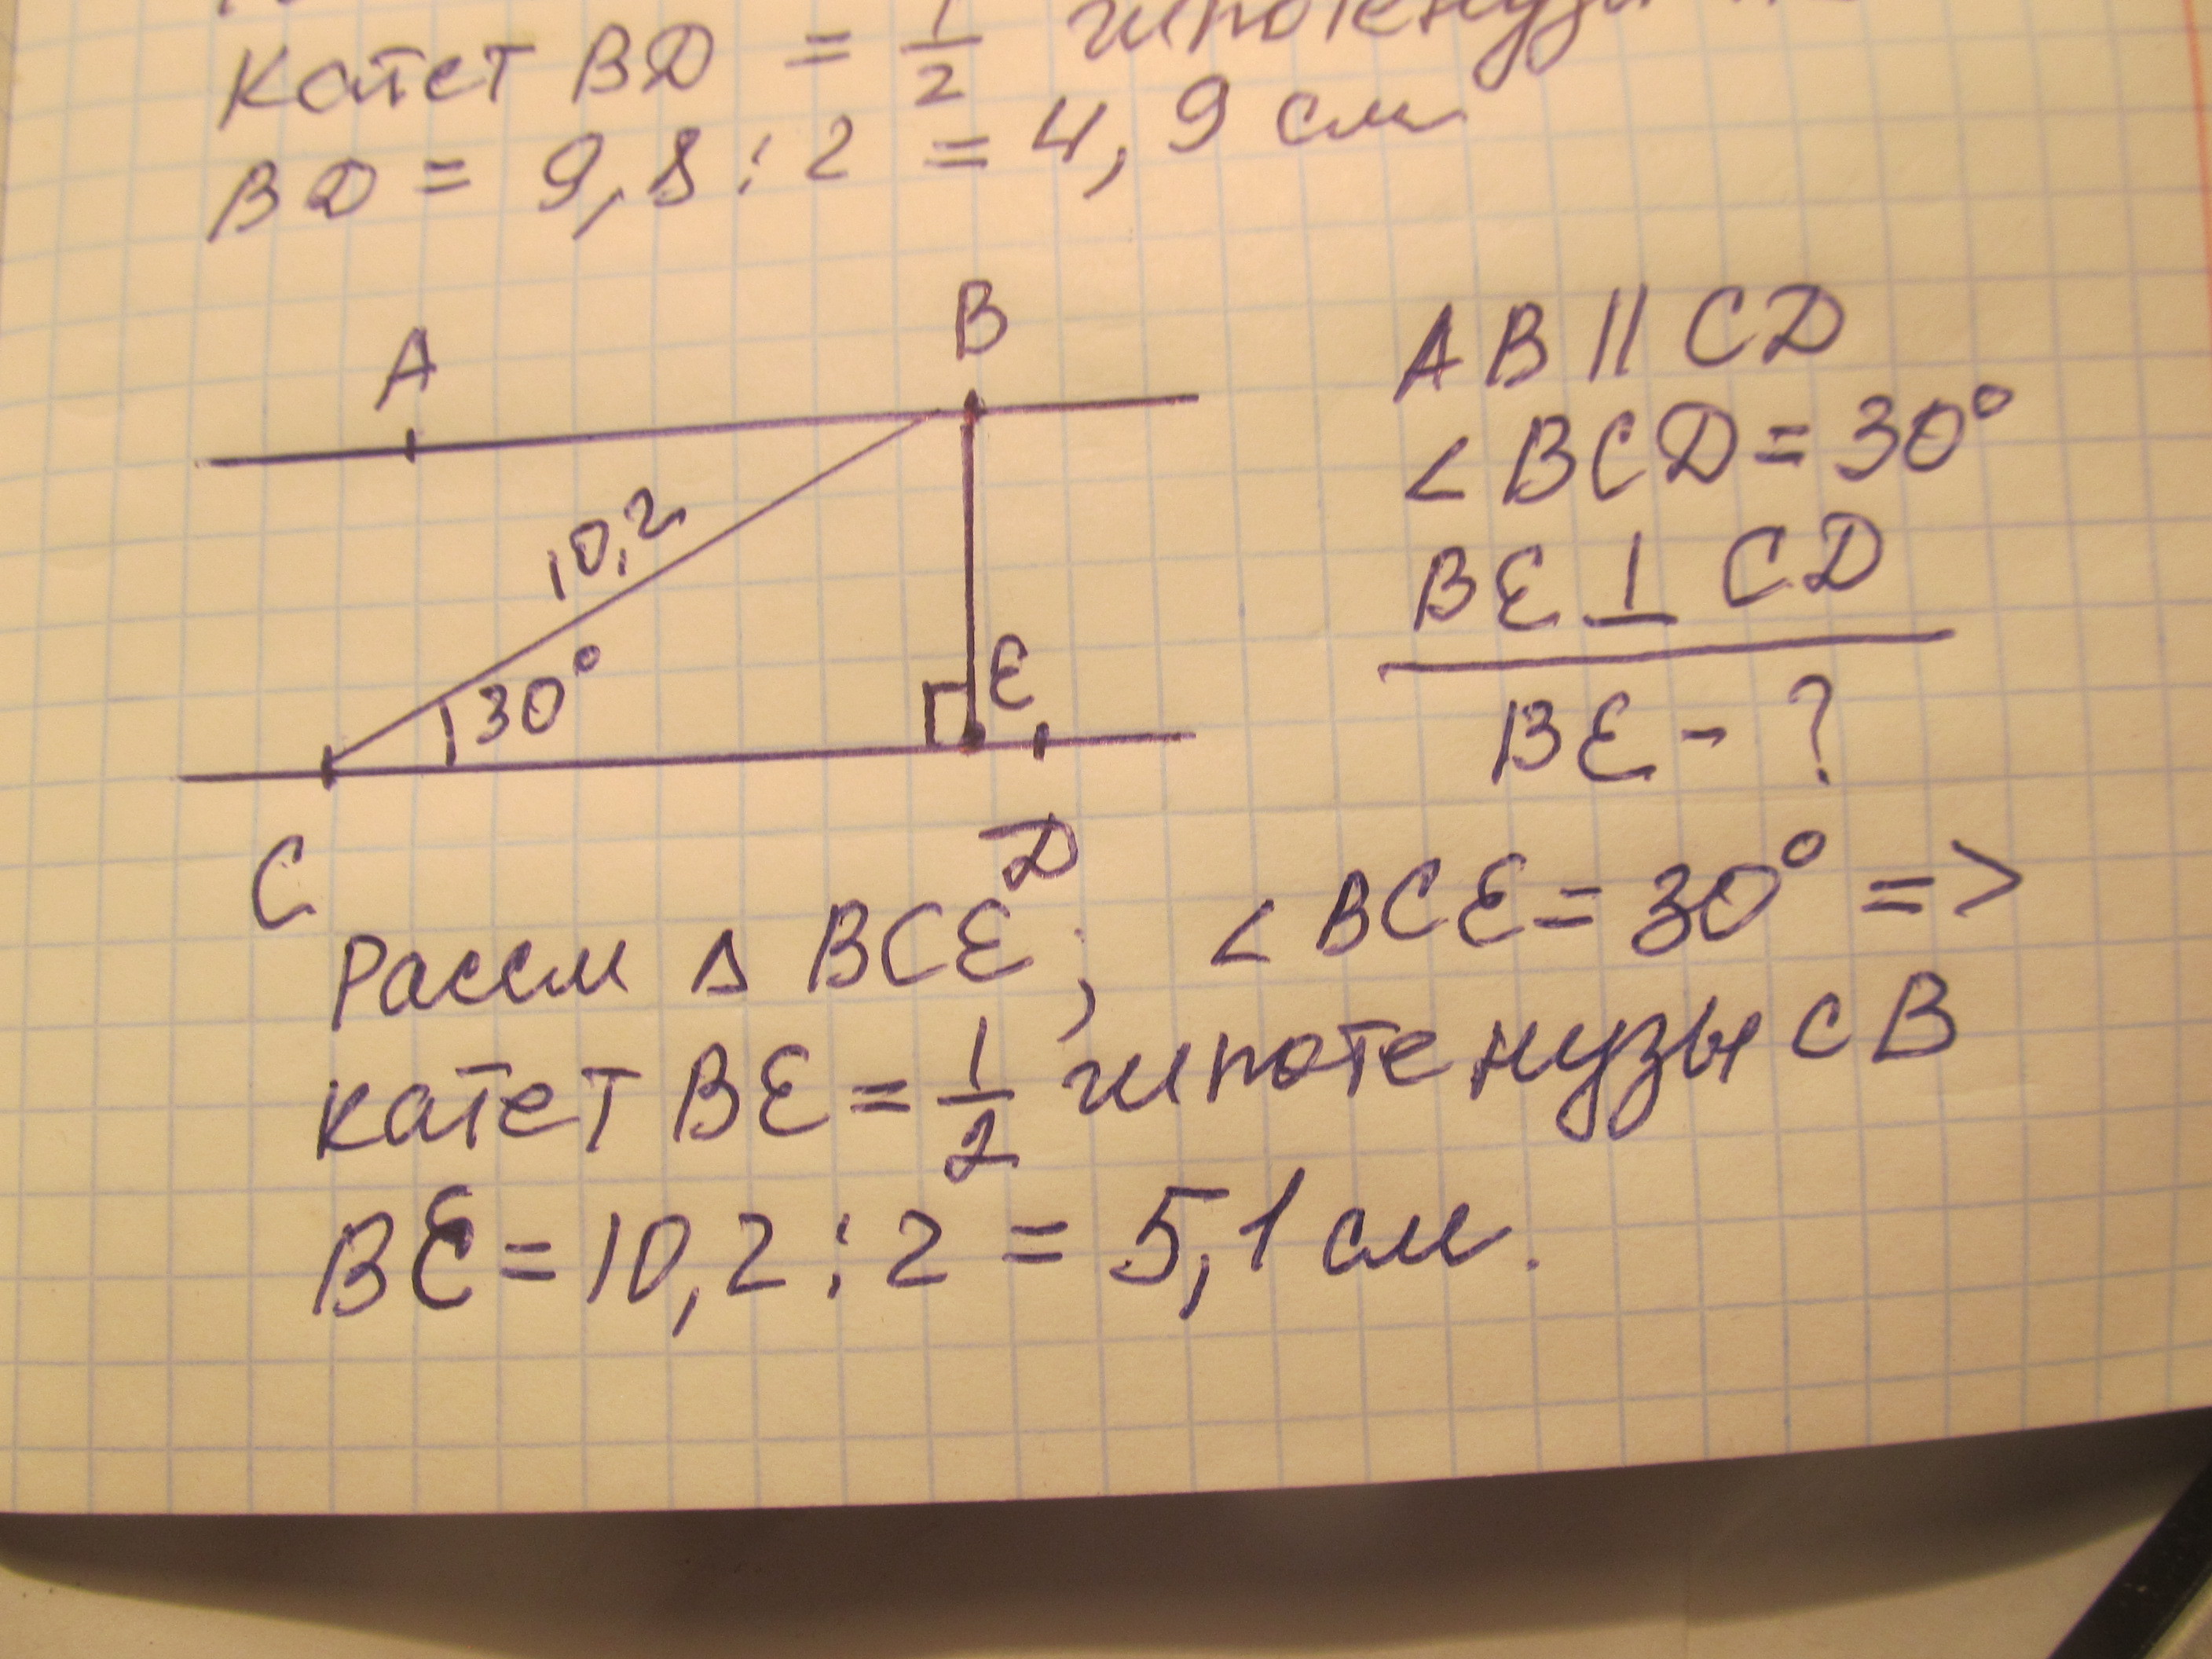 Катет BD = 1/2 гипотенузы
BD = 9,8 : 2 = 4,9 см
A
B
10,2
30°
E
C
D
AB || CD
∠BCD = 30°
BE ⊥ CD
BE - ?
Рассм Δ BCE; ∠BCE = 30° =>
катет BE = 1/2 гипотенузы CB
BE = 10,2 : 2 = 5,1 см.